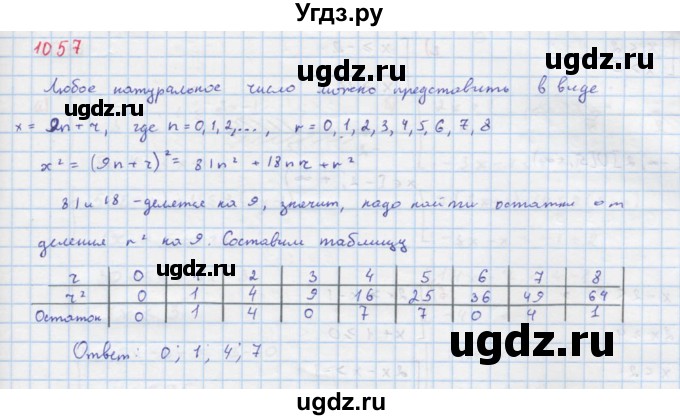 Угдз.ру
1057
ugdz.ru
ugdz.ru
Любое натуральное число можно представить в виде
x = 9n + r, где n = 0, 1, 2, ..., r = 0, 1, 2, 3, 4, 5, 6, 7, 8
ugdz.ru
x² = (9n + r)² = 81n² + 18nr + r²
ugdz.ru
81 и 18 - делятся на 9, значит, надо найти остатки от
деления r² на 9. Составим таблицу
ugdz.ru
r 0 2 3 4 5 6 7 8
r² 0 1 4 9 16 25 36 49 64
Остаток 0 1 4 0 7 7 0 4 1
Ответ: 0; 1; 4; 7
ugdz.ru
ugdz.ru